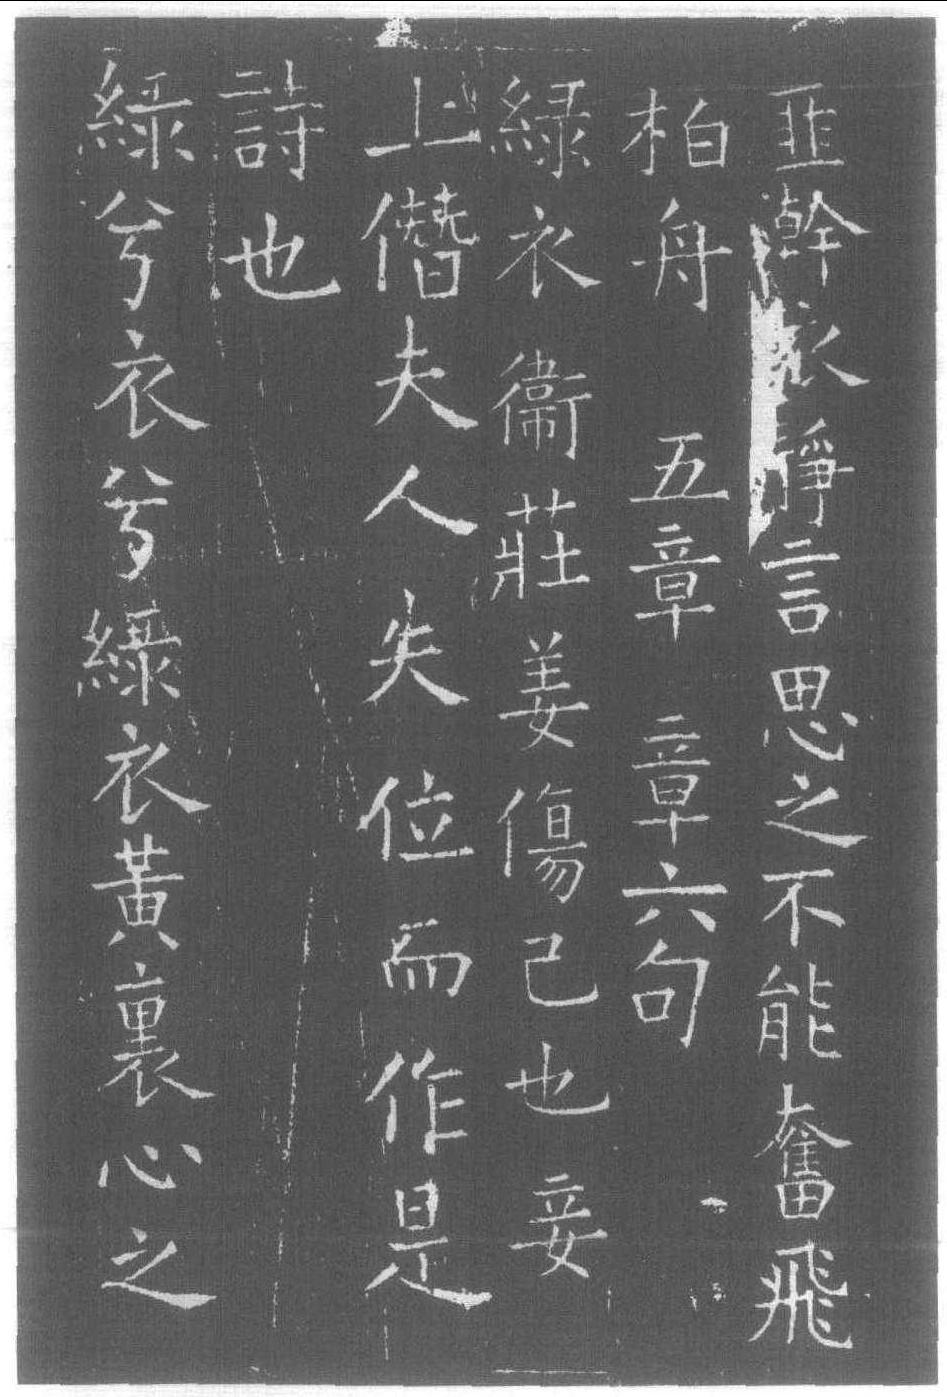 匪澣衣靜言思之不能奮飛
柏舟 五章章六句
綠衣衞莊姜傷己也妾
上僭夫人失位而作是
詩也
綠兮衣兮綠衣黃裏心之